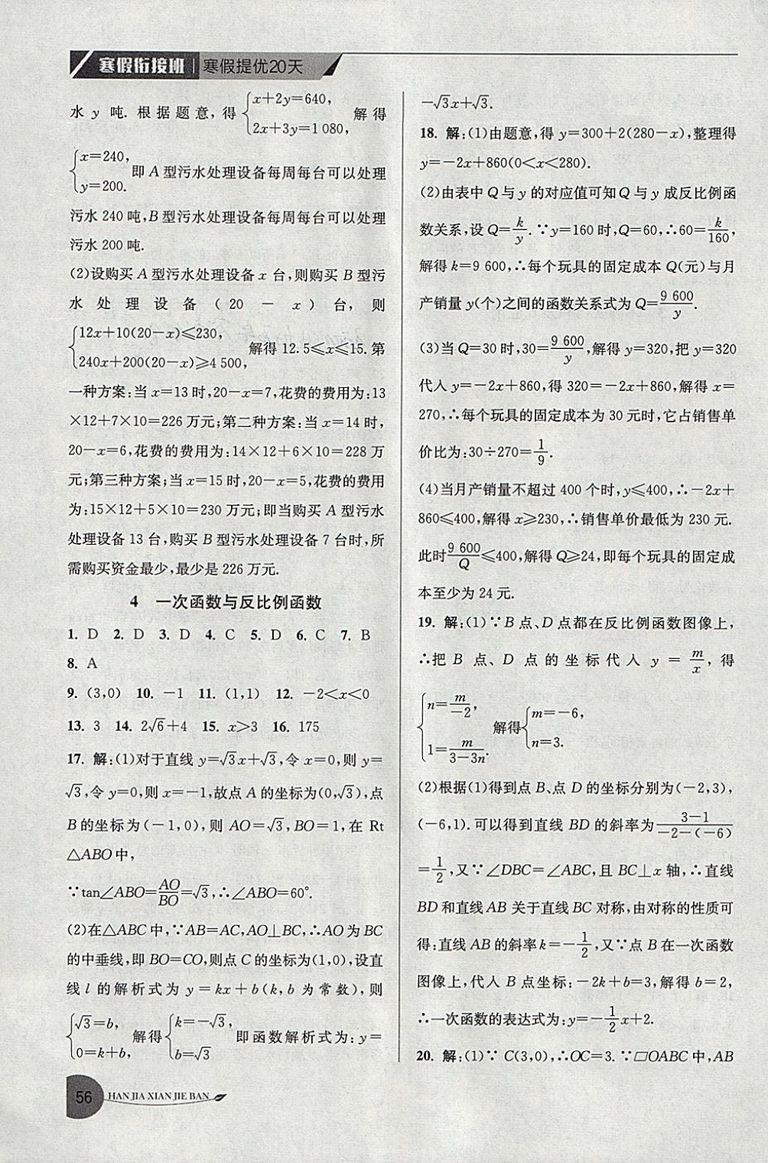 寒假衔接班 寒假提优20天
水 y 吨. 根据题意, 得 {x+2y=640, 2x+3y=1 080, 解得
{x=240, y=200. 即 A 型污水处理设备每周每台可以处理
污水 240 吨,B 型污水处理设备每周每台可以处理
污水 200 吨.
(2)设购买 A 型污水处理设备 x 台,则购买 B 型污
水处理设备(20－x)台,则
{12x+10(20－x)≤230, 240x+200(20－x)≥4 500, 解得 12.5≤x≤15. 第
一种方案:当 x=13 时,20－x=7,花费的费用为:13
×12+7×10=226 万元;第二种方案:当 x=14 时,
20－x=6,花费的费用为:14×12+6×10=228 万
元;第三种方案;当 x=15 时,20－x=5,花费的费用
为:15×12+5×10=230 万元;即当购买 A 型污水
处理设备 13 台,购买 B 型污水处理设备 7 台时,所
需购买资金最少,最少是 226 万元.
4 一次函数与反比例函数
1. D 2. D 3. D 4. C 5. D 6. C 7. B
8. A
9. (3,0) 10. －1 11. (1,1) 12. －2<x<0
13. 3 14. 2√6+4 15. x>3 16. 175
17. 解:(1)对于直线 y=√3x+√3,令 x=0,则 y=
√3,令 y=0,则 x=－1,故点 A 的坐标为(0,√3),点
B 的坐标为(－1,0),则 AO=√3,BO=1,在 Rt
△ABO 中,
∵tan∠ABO=AO/BO=√3,∴∠ABO=60°.
(2)在△ABC 中,∵AB=AC,AO⊥BC,∴AO 为 BC
的中垂线,即 BO=CO,则点 C 的坐标为(1,0),设直
线 l 的解析式为 y=kx+b(k,b 为常数),则
{√3=b, 0=k+b, 解得 {k=－√3, b=√3 即函数解析式为:y=
－√3x+√3.
18. 解:(1)由题意,得 y=300+2(280－x),整理得
y=－2x+860(0<x<280).
(2)由表中 Q 与 y 的对应值可知 Q 与 y 成反比例函
数关系,设 Q=k/y. ∵y=160 时,Q=60,∴60=k/160,
解得 k=9 600,∴每个玩具的固定成本 Q(元)与月
产销量 y(个)之间的函数关系式为 Q=9 600/y.
(3)当 Q=30 时,30=9 600/y,解得 y=320,把 y=320
代入 y=－2x+860,得 320=－2x+860,解得 x=
270,∴每个玩具的固定成本为 30 元时,它占销售单
价比为:30÷270=1/9.
(4)当月产销量不超过 400 个时,y≤400,∴－2x+
860≤400,解得 x≥230,∴销售单价最低为 230 元.
此时 9 600/Q≤400,解得 Q≥24,即每个玩具的固定成
本至少为 24 元.
19. 解:(1)∵B 点、D 点都在反比例函数图像上,
∴把 B 点、D 点的坐标代入 y=m/x,得
{n=m/－2, 1=m/3－3n. 解得 {m=－6, n=3.
(2)根据(1)得到点 B、点 D 的坐标分别为(－2,3),
(－6,1).可以得到直线 BD 的斜率为 3－1/－2－(－6)
=1/2,又∵∠DBC=∠ABC,且 BC⊥x 轴,∴直线
BD 和直线 AB 关于直线 BC 对称,由对称的性质可
得:直线 AB 的斜率 k=－1/2,又∵点 B 在一次函数
图像上,代入 B 点坐标:－2k+b=3,解得 b=2,
∴一次函数的表达式为:y=－1/2x+2.
20. 解:(1)∵C(3,0),∴OC=3. ∵▱OABC 中,AB
56 HAN JIA XIAN JIE BAN